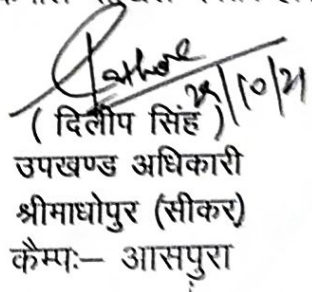 Rathore
29/10/21
( दिलीप सिंह )
उपखण्ड अधिकारी
श्रीमाधोपुर (सीकर)
कैम्पः– आसपुरा